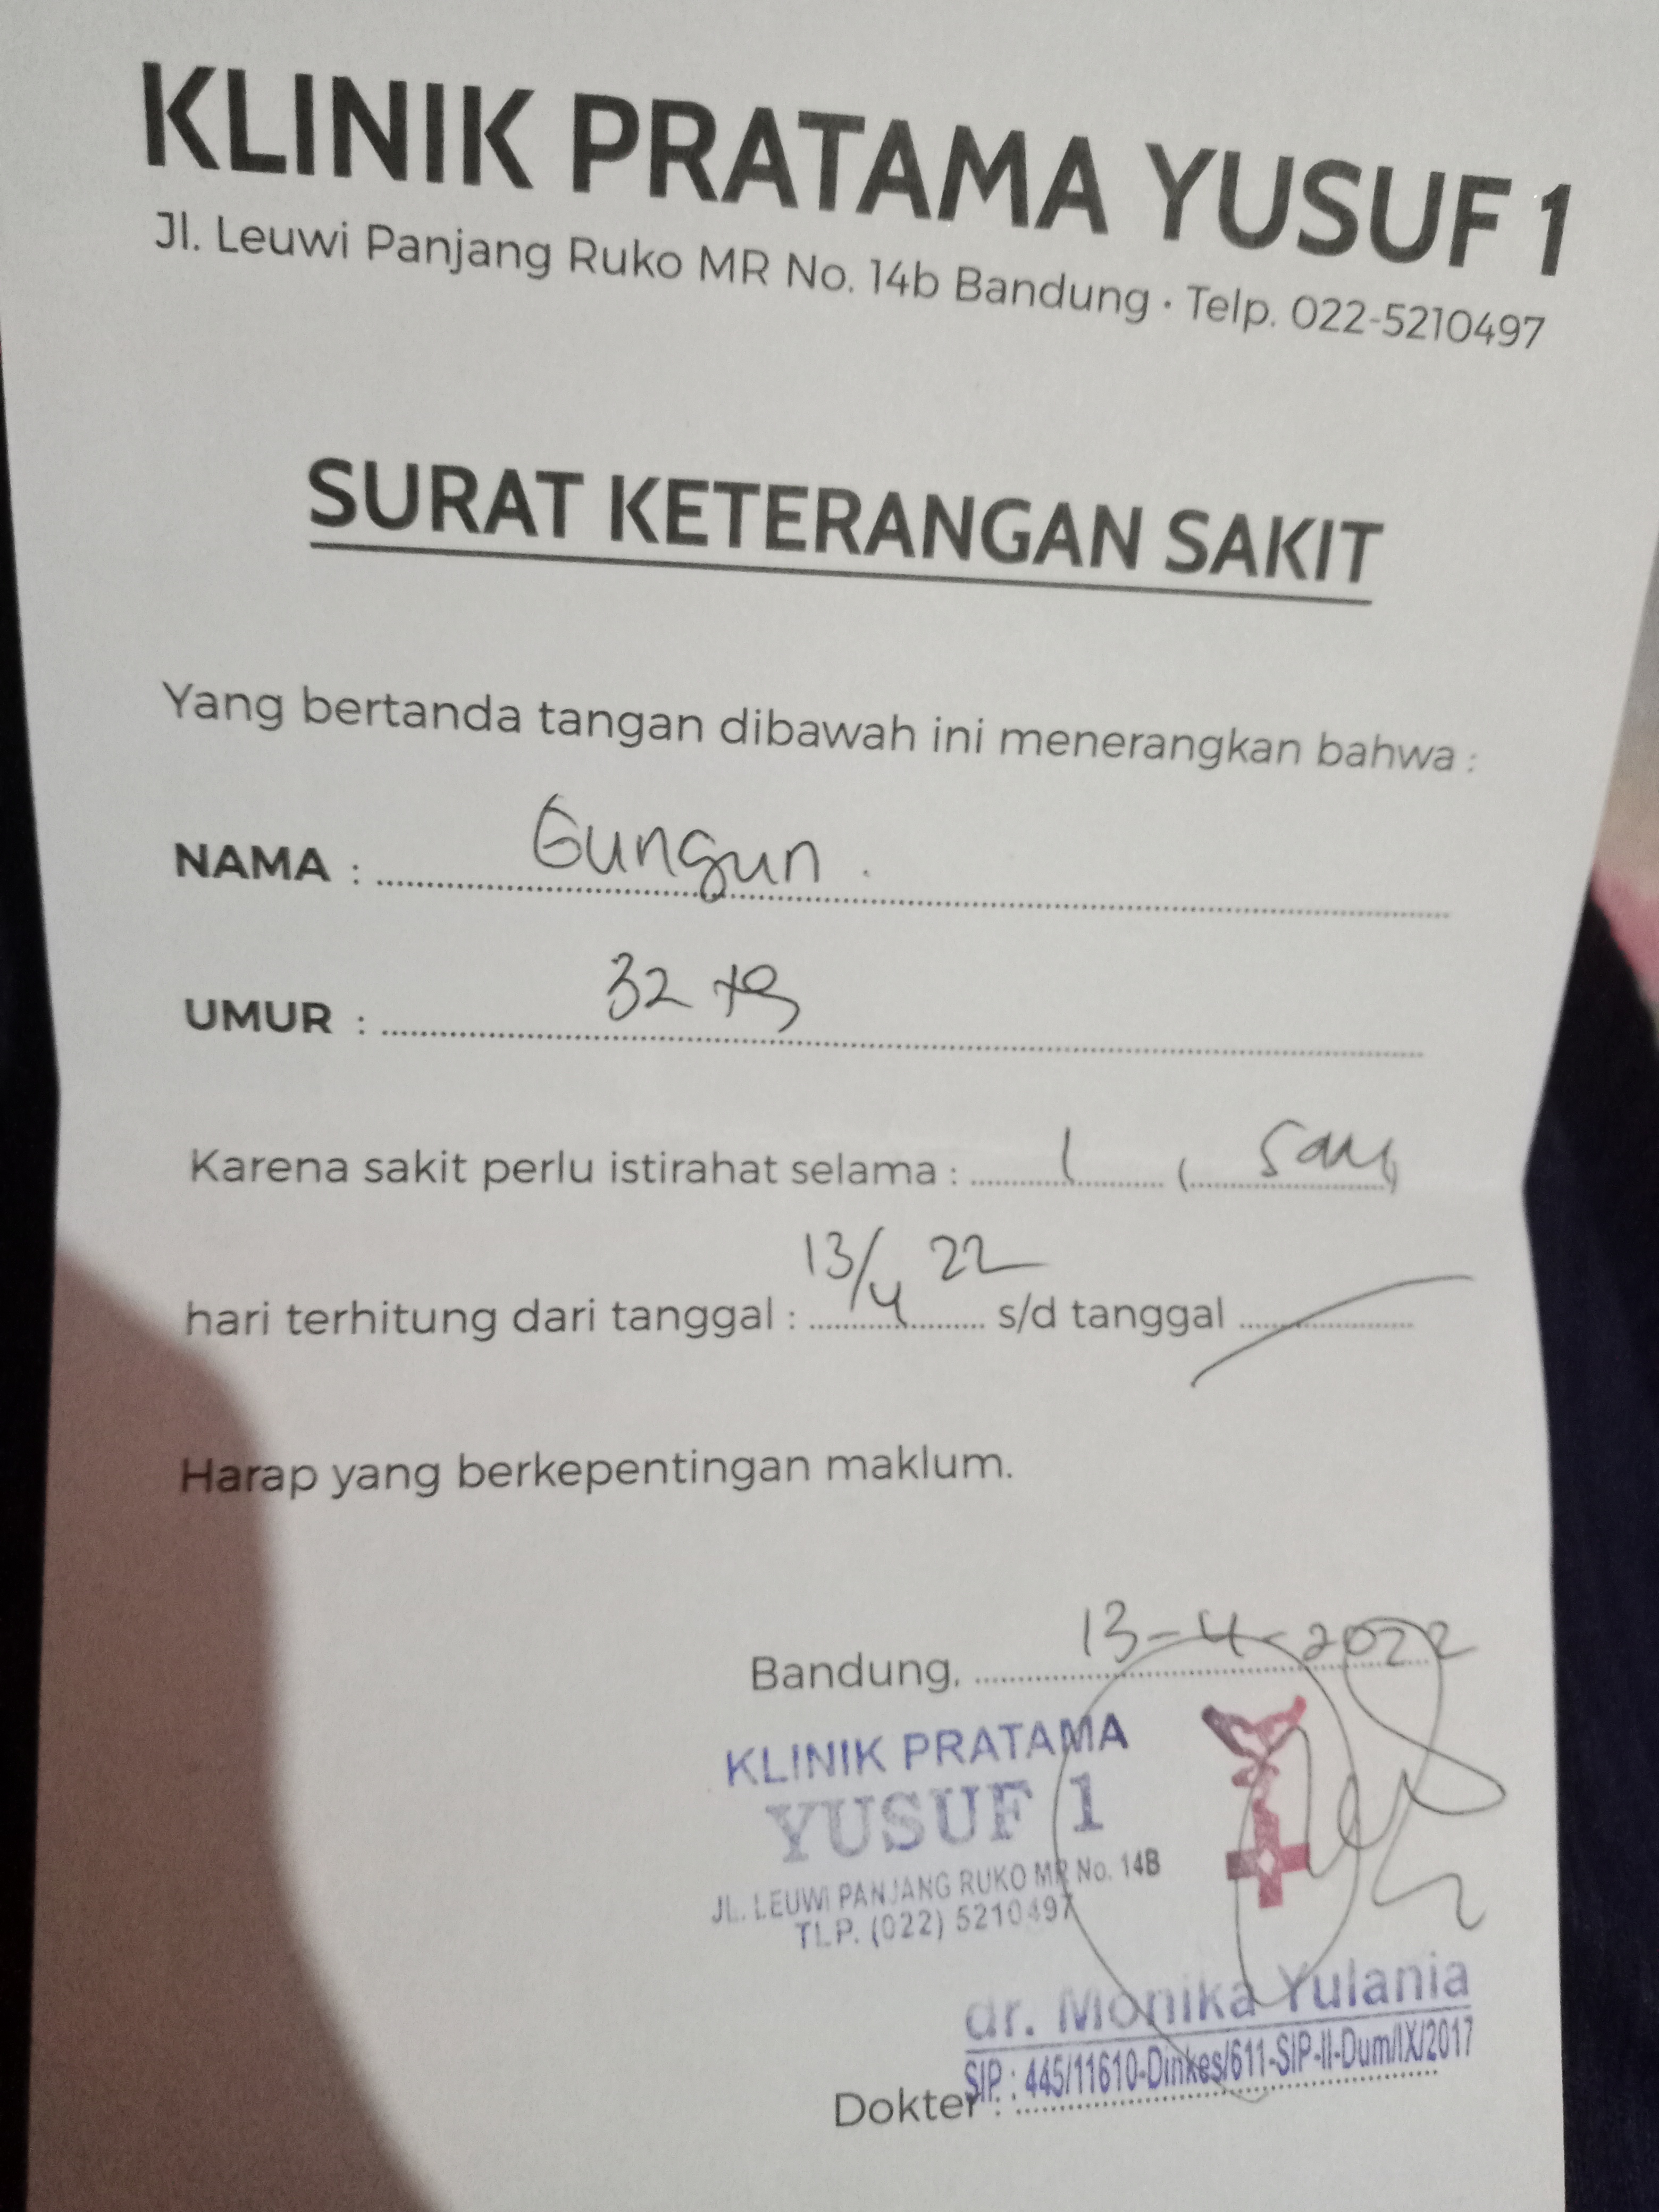 KLINIK PRATAMA YUSUF 1
Jl. Leuwi Panjang Ruko MR No. 14b Bandung · Telp. 022-5210497
SURAT KETERANGAN SAKIT
Yang bertanda tangan dibawah ini menerangkan bahwa :
NAMA : Gungun .
UMUR : 32
Karena sakit perlu istirahat selama : 1 ( )
hari terhitung dari tanggal : 13/4 22 s/d tanggal
Harap yang berkepentingan maklum.
Bandung, 13-4-2022
KLINIK PRATAMA
YUSUF 1
JL. LEUWI PANJANG RUKO MR No. 14B
TLP. (022) 5210497
dr. Monika Yulania
SIP. : 445/11610-Dinkes/611-SIP-II-Dum/IX/2017
Dokter :